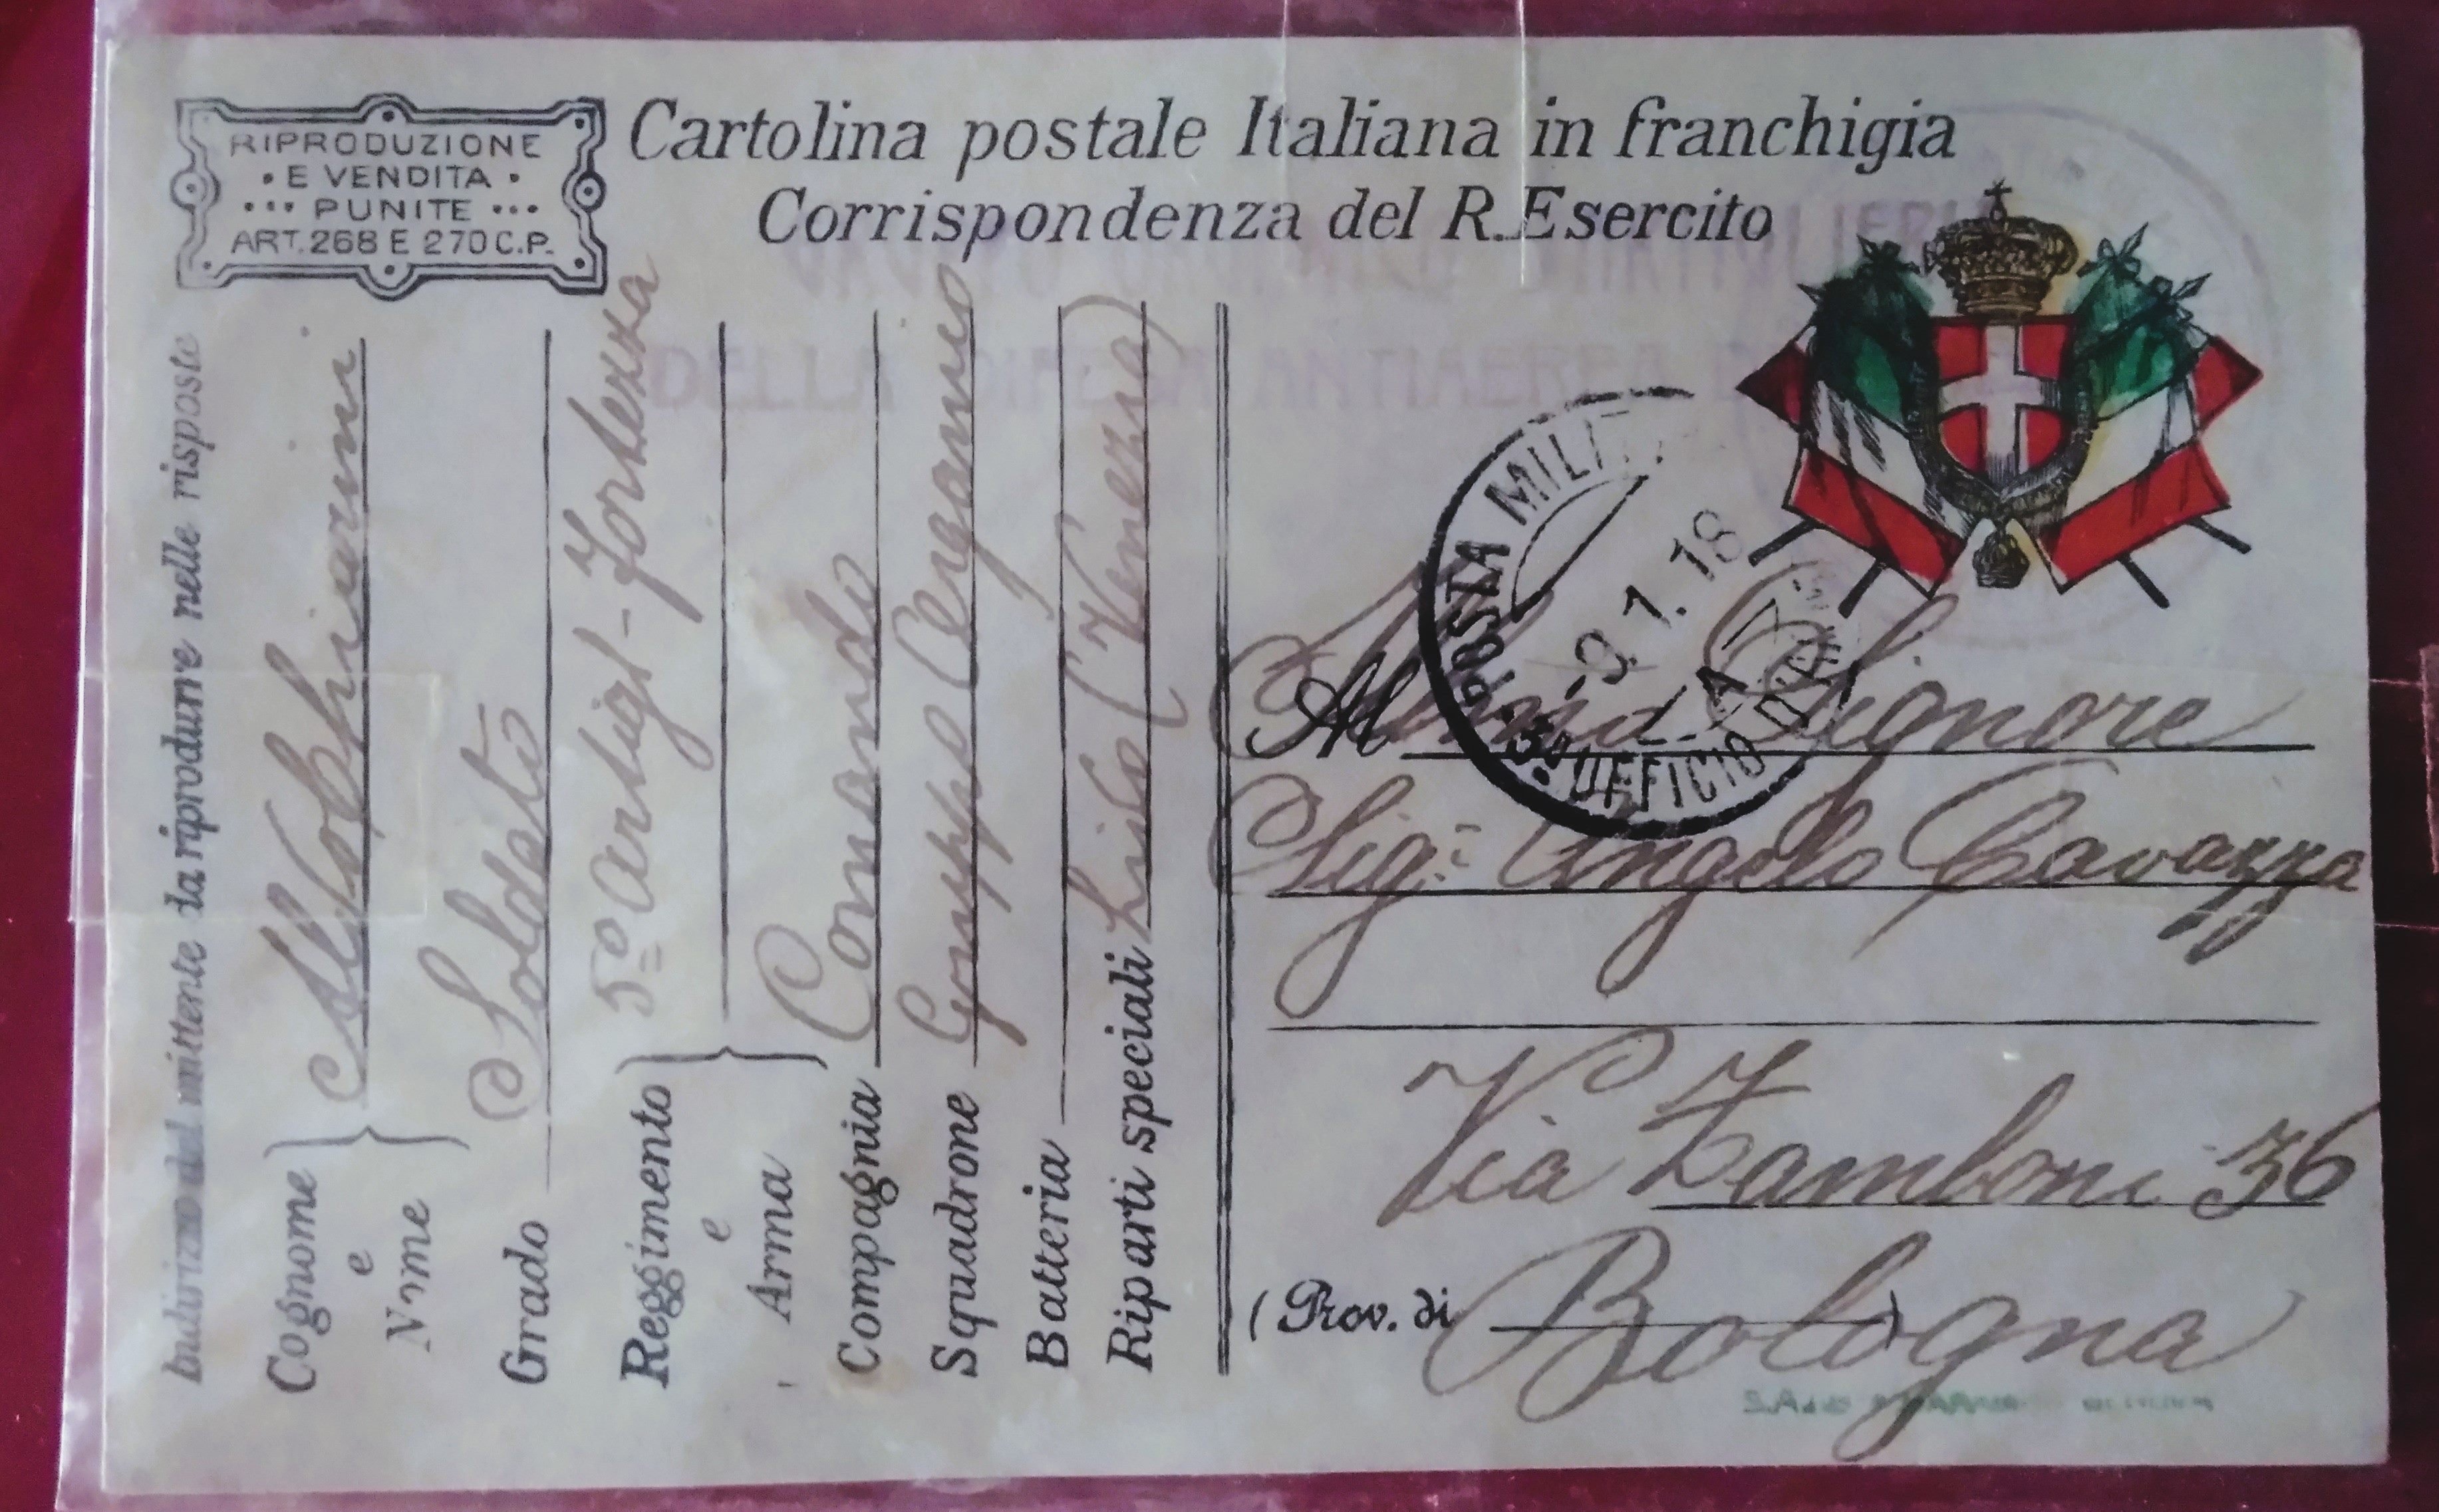 RIPRODUZIONE
E VENDITA
PUNITE
ART. 268 E 270 C.P.
Cartolina postale Italiana in franchigia
Corrispondenza del R. Esercito
DELLA DIFESA ANTIAEREA
Indirizzo del mittente da riprodurre nelle risposte
Cognome e Nome
Grado Soldato
Reggimento e Arma 5º Artigl - Fortezza
Compagnia Comando
Squadrone Gruppo
Batteria
Riparti speciali Lido (Venezia)
POSTA MILITA
-9.1.18
3º UFFICIO
Al Signore
Sig. Angelo Cavazza
Via Zamboni 36
(Prov. di Bologna)